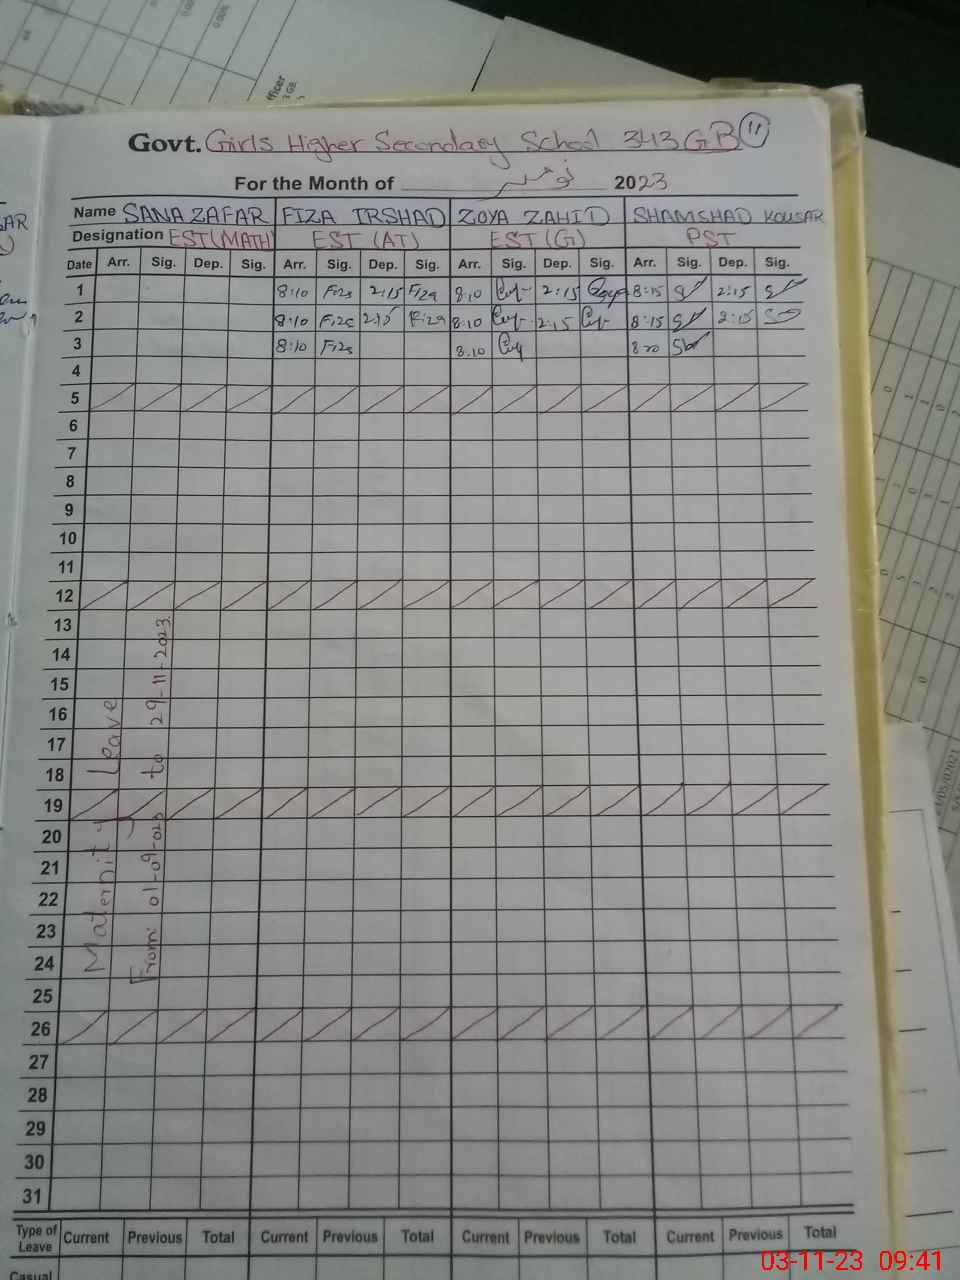 Govt. Girls Higher Secondary School 343 GB 11
For the Month of نومبر 2023
Name SANA ZAFAR FIZA IRSHAD ZOYA ZAHID SHAMSHAD KOUSAR
Designation EST(MATH) EST (AT) EST (G) PST
Date Arr. Sig. Dep. Sig. Arr. Sig. Dep. Sig. Arr. Sig. Dep. Sig. Arr. Sig. Dep. Sig.
1 8:10 Fiza 2:15 Fiza 8.10 2:15 8:15 2:15
2 8:10 Fiza 2:15 Fiza 8.10 2:15 8:15 2:15
3 8:10 Fiza 8.10 8:20
4
5
6
7
8
9
10
11
12
13
14
15
16
17
18
19
20
21
22
23
24
25
26
27
28
29
30
31
Maternity leave
From: 01-09-023 to 29-11-2023
Type of Leave Current Previous Total Current Previous Total Current Previous Total Current Previous Total
Casual
03-11-23 09:41